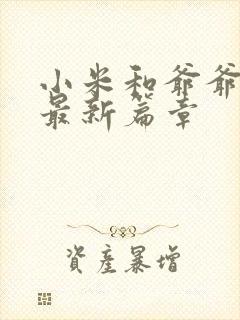 小米和爷爷
最新篇章
資產暴增